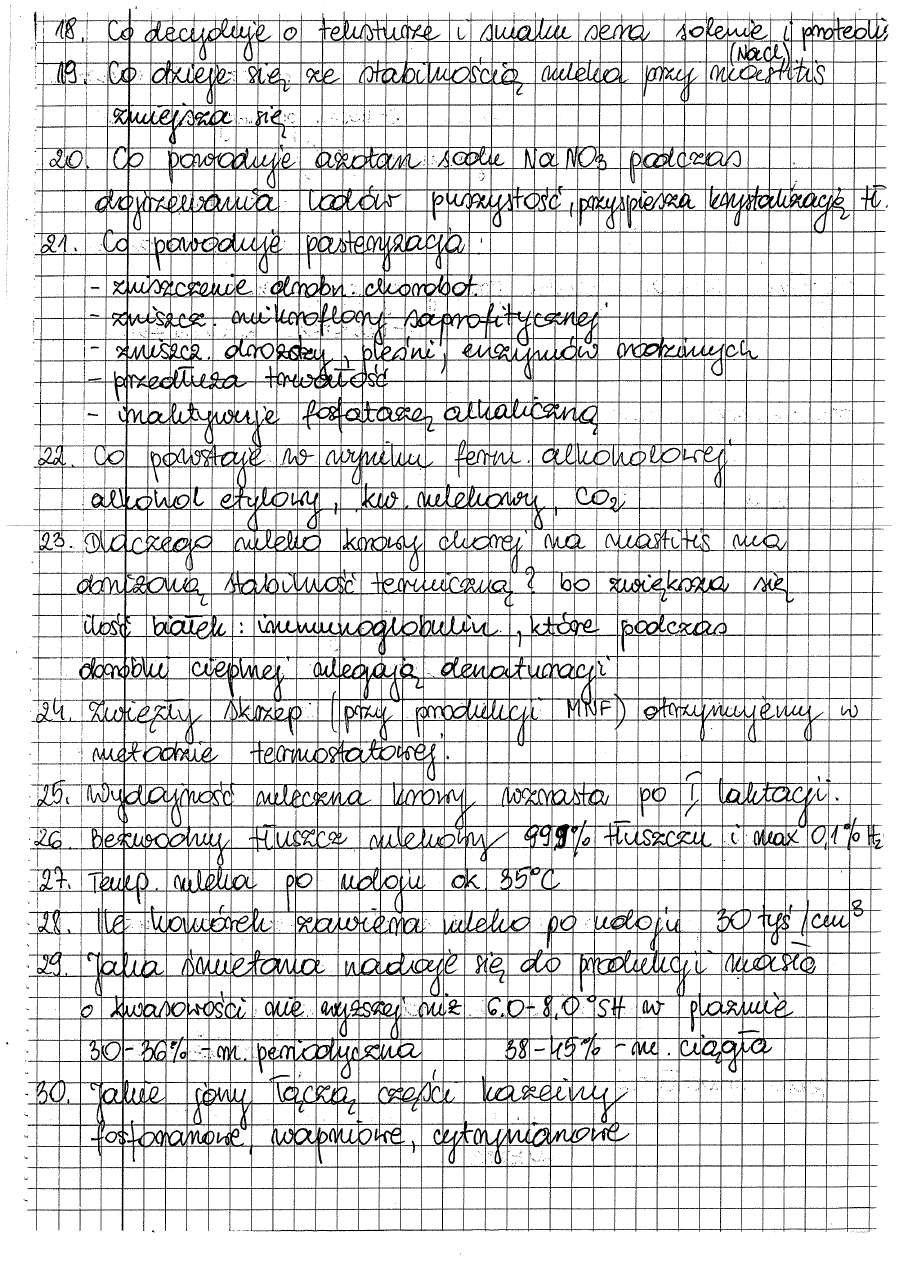 18. Co decyduje o teksturze i smaku sera solenie i proteoliz
(NaCl)
19. Co dzieje się ze stabilnością mleka przy mastitis
zmiejsza się
20. Co powoduje azotan sodu NaNO3 podczas
dojrzewania lodów puszystość, przyspiesza krystalizację tł.
21. Co powoduje pasteryzacja:
- zniszczenie drobn. chorobot.
- zniszcz. mikroflory saprofitycznej
- zniszcz. drożdży, pleśni, enzymów rodzimych
- przedłuża trwałość
- inaktywuje fosfatazę alkaliczną
22. Co powstaje w wyniku ferm. alkoholowej
alkohol etylowy, kw. mlekowy, CO2
23. Dlaczego mleko krowy chorej na mastitis ma
obniżoną stabilność termiczną? bo zwiększa się
ilość białek: immunoglobulin, które podczas
obróbki cieplnej ulegają denaturacji
24. Zwięzły skrzep (przy produkcji MNF) otrzymujemy w
metodzie termostatowej.
25. Wydajność mleczna krowy wzrasta po I laktacji.
26. Bezwodny tłuszcz mlekowy 99,9% tłuszczu i max 0,1% H2
27. Temp. mleka po udoju ok. 35°C
28. Ile komórek zawiera mleko po udoju 30 tyś/cm3
29. Jaka śmietana nadaje się do produkcji masła
o kwasowości nie wyższej niż 6,0-8,0°SH w plazmie
30-36% - m. periodyczna 38-45% - m. ciągła
30. Jakie jony łączą części kazeiny
fosforanowe, wapniowe, cytrynianowe